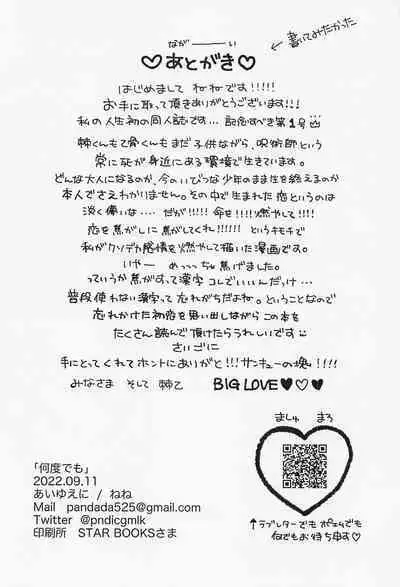 なが——い
♡あとがき♡
←書いてみたかった
はじめまして ねねです!!!!!
お手に取って頂きありがとうございます!!!
私の人生初の同人誌です… 記念すべき第1号
棘くんも骨くんもまだ子供ながら、呪術師という
常に死が身近にある環境で生きています。
どんな大人になるのか、今のいびつな少年のまま性を終えるのか
本人でさえわかりません。その中で生まれた恋というのは
淡く儚いな…. だが!!!! 命を!!!!燃やして!!!!
恋を焦がしに焦がしてくれ!!!!!! というキモチで
私がクソデカ感情を燃やして描いた漫画です。
いやー めっっっちゃ焦げました。
っていうか焦がすって漢字コレでいいんだけっ…
普段使わない漢字って忘れがちだよね。ということなので
忘れかけた初恋を思い出しながらこの本を
たくさん読んで頂けたらうれしいです
さいごに
手にとってくれてホントにありがと!!!サンキューの塊!!!!
みなさま そして 棘乙 BIG LOVE♥♡♥
ましゅ まろ
↑ラブレターでもポエムでも
何でもお待ち申す♡
「何度でも」
2022.09.11
あいゆえに / ねね
Mail pandada525@gmail.com
Twitter @pndicgmlk
印刷所 STAR BOOKSさま